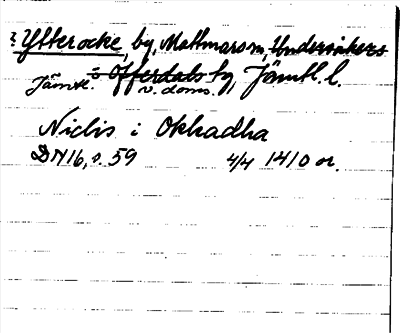 Ytterocke, by, Mattmars sn, Undersåkers
Jämtl. o Offerdals tg, Jämtl. l.
v. doms.
Niclis i Okkadha
DN 16, s. 59 4/4 1410 or.